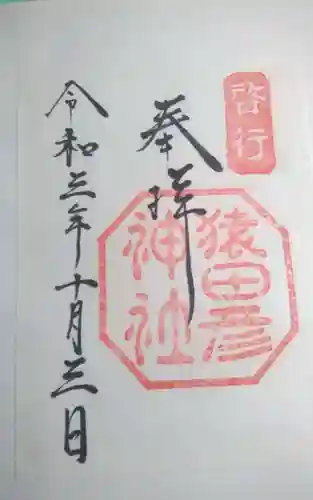 啓行
奉拝
猿田彦
神社
令和三年十月三日